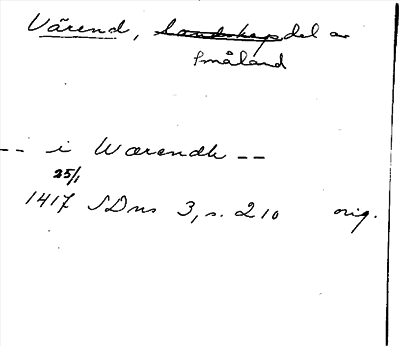 Värend, landskap del av
Småland
-- i Wærendh --
25/1
1417 SDns 3, s. 210 orig.